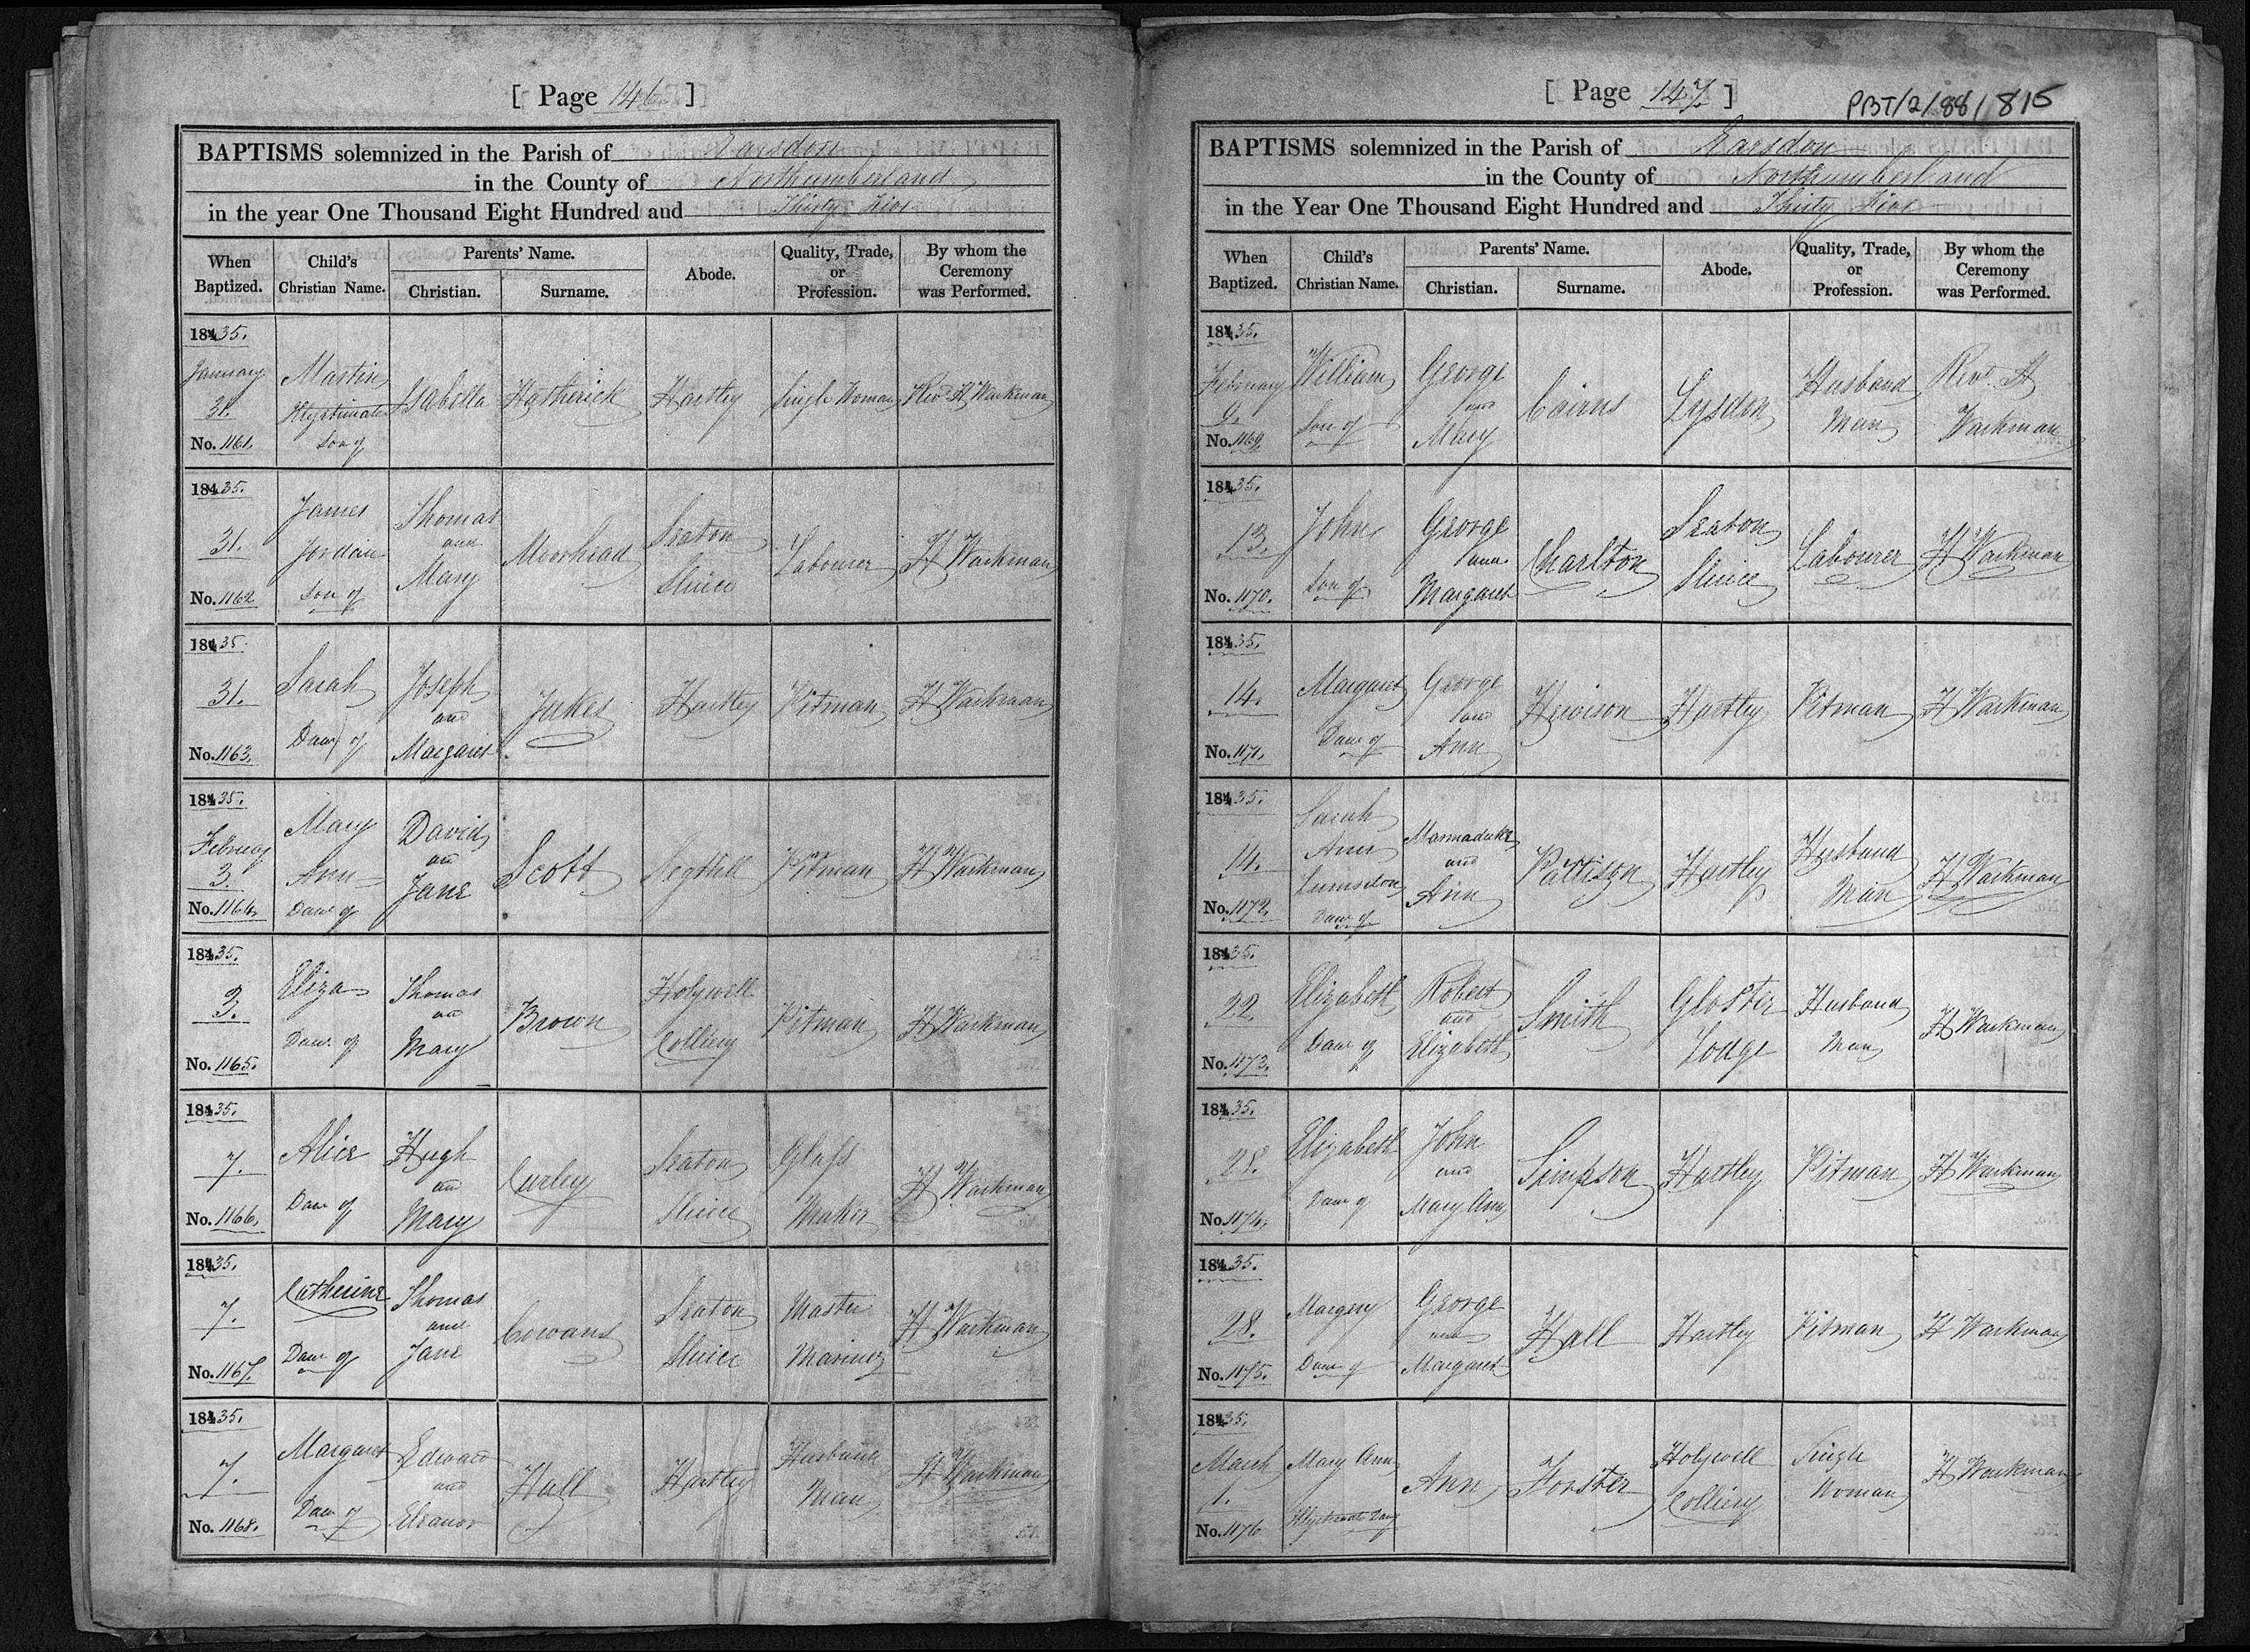 [ Page 146 ]
BAPTISMS solemnized in the Parish of Earsdon
in the County of Northumberland
in the year One Thousand Eight Hundred and Thirty Five
When Baptized.
Child's Christian Name.
Parents' Name.
Christian.
Surname.
Abode.
Quality, Trade, or Profession.
By whom the Ceremony was Performed.
18435.
January
31.
No. 1161.
Martin
Illegitimate
Son of
Isabella
Hartley
Single Woman
Rev. H Warkman
18435.
31.
No. 1162
James
Jordan
Son of
Thomas
and
Mary
Moorhead
Seaton
Sluice
Labourer
H Warkman
18435.
31.
No. 1163.
Sarah
Daur of
Joseph
and
Margaret
Jakes
Hartley
Pitman
H Warkman
18435.
February
3.
No. 1164.
Mary
Ann
Daur of
David
an
Jane
Scott
Seghill
Pitman
H Warkman
18435.
3.
No. 1165.
Eliza
Daur of
Thomas
an
Mary
Brown
Holywell
Colliery
Pitman
H Warkman
18435.
7.
No. 1166.
Alice
Daur of
Hugh
an
Mary
Curley
Seaton
Sluice
Glass
Maker
H Warkman
18435.
7.
No. 1167.
Catherine
Daur of
Thomas
and
Jane
Cowans
Seaton
Sluice
Master
Mariner
H Warkman
18435.
7.
No. 1168.
Margaret
Daur of
Edward
and
Eleanor
Hall
Hartley
Husband
Man
H Warkman
[ Page 147 ]
PBT/2/88/815
BAPTISMS solemnized in the Parish of Earsdon
in the County of Northumberland
in the Year One Thousand Eight Hundred and Thirty Five
When Baptized.
Child's Christian Name.
Parents' Name.
Christian.
Surname.
Abode.
Quality, Trade, or Profession.
By whom the Ceremony was Performed.
18435.
February
9.
No. 1169.
William
Son of
George
and
Mary
Cairns
Lysdon
Husband
Man
Revd. H
Warkman
18435.
13.
No. 1170.
John
Son of
George
and
Margaret
Charlton
Seaton
Sluice
Labourer
H Warkman
18435.
14.
No. 1171.
Margaret
Daur of
George
and
Ann
Hewison
Hartley
Pitman
H Warkman
18435.
14.
No. 1172.
Sarah
Ann
Lumsdon
Daur of
Marmaduke
and
Ann
Pattison
Hartley
Husband
Man
H Warkman
18435.
22.
No. 1173.
Elizabeth
Daur of
Robert
and
Elizabeth
Smith
Gloster
Lodge
Husband
Man
H Warkman
18435.
28.
No. 1174.
Elizabeth
Daur of
John
and
Mary Ann
Simpson
Hartley
Pitman
H Warkman
18435.
28.
No. 1175.
Margery
Daur of
George
and
Margaret
Hall
Hartley
Pitman
H Warkman
18435.
March
1.
No. 1176
Mary Ann
Illegitimate Daur
Ann
Forster
Holywell
Colliery
Single
Woman
H Warkman